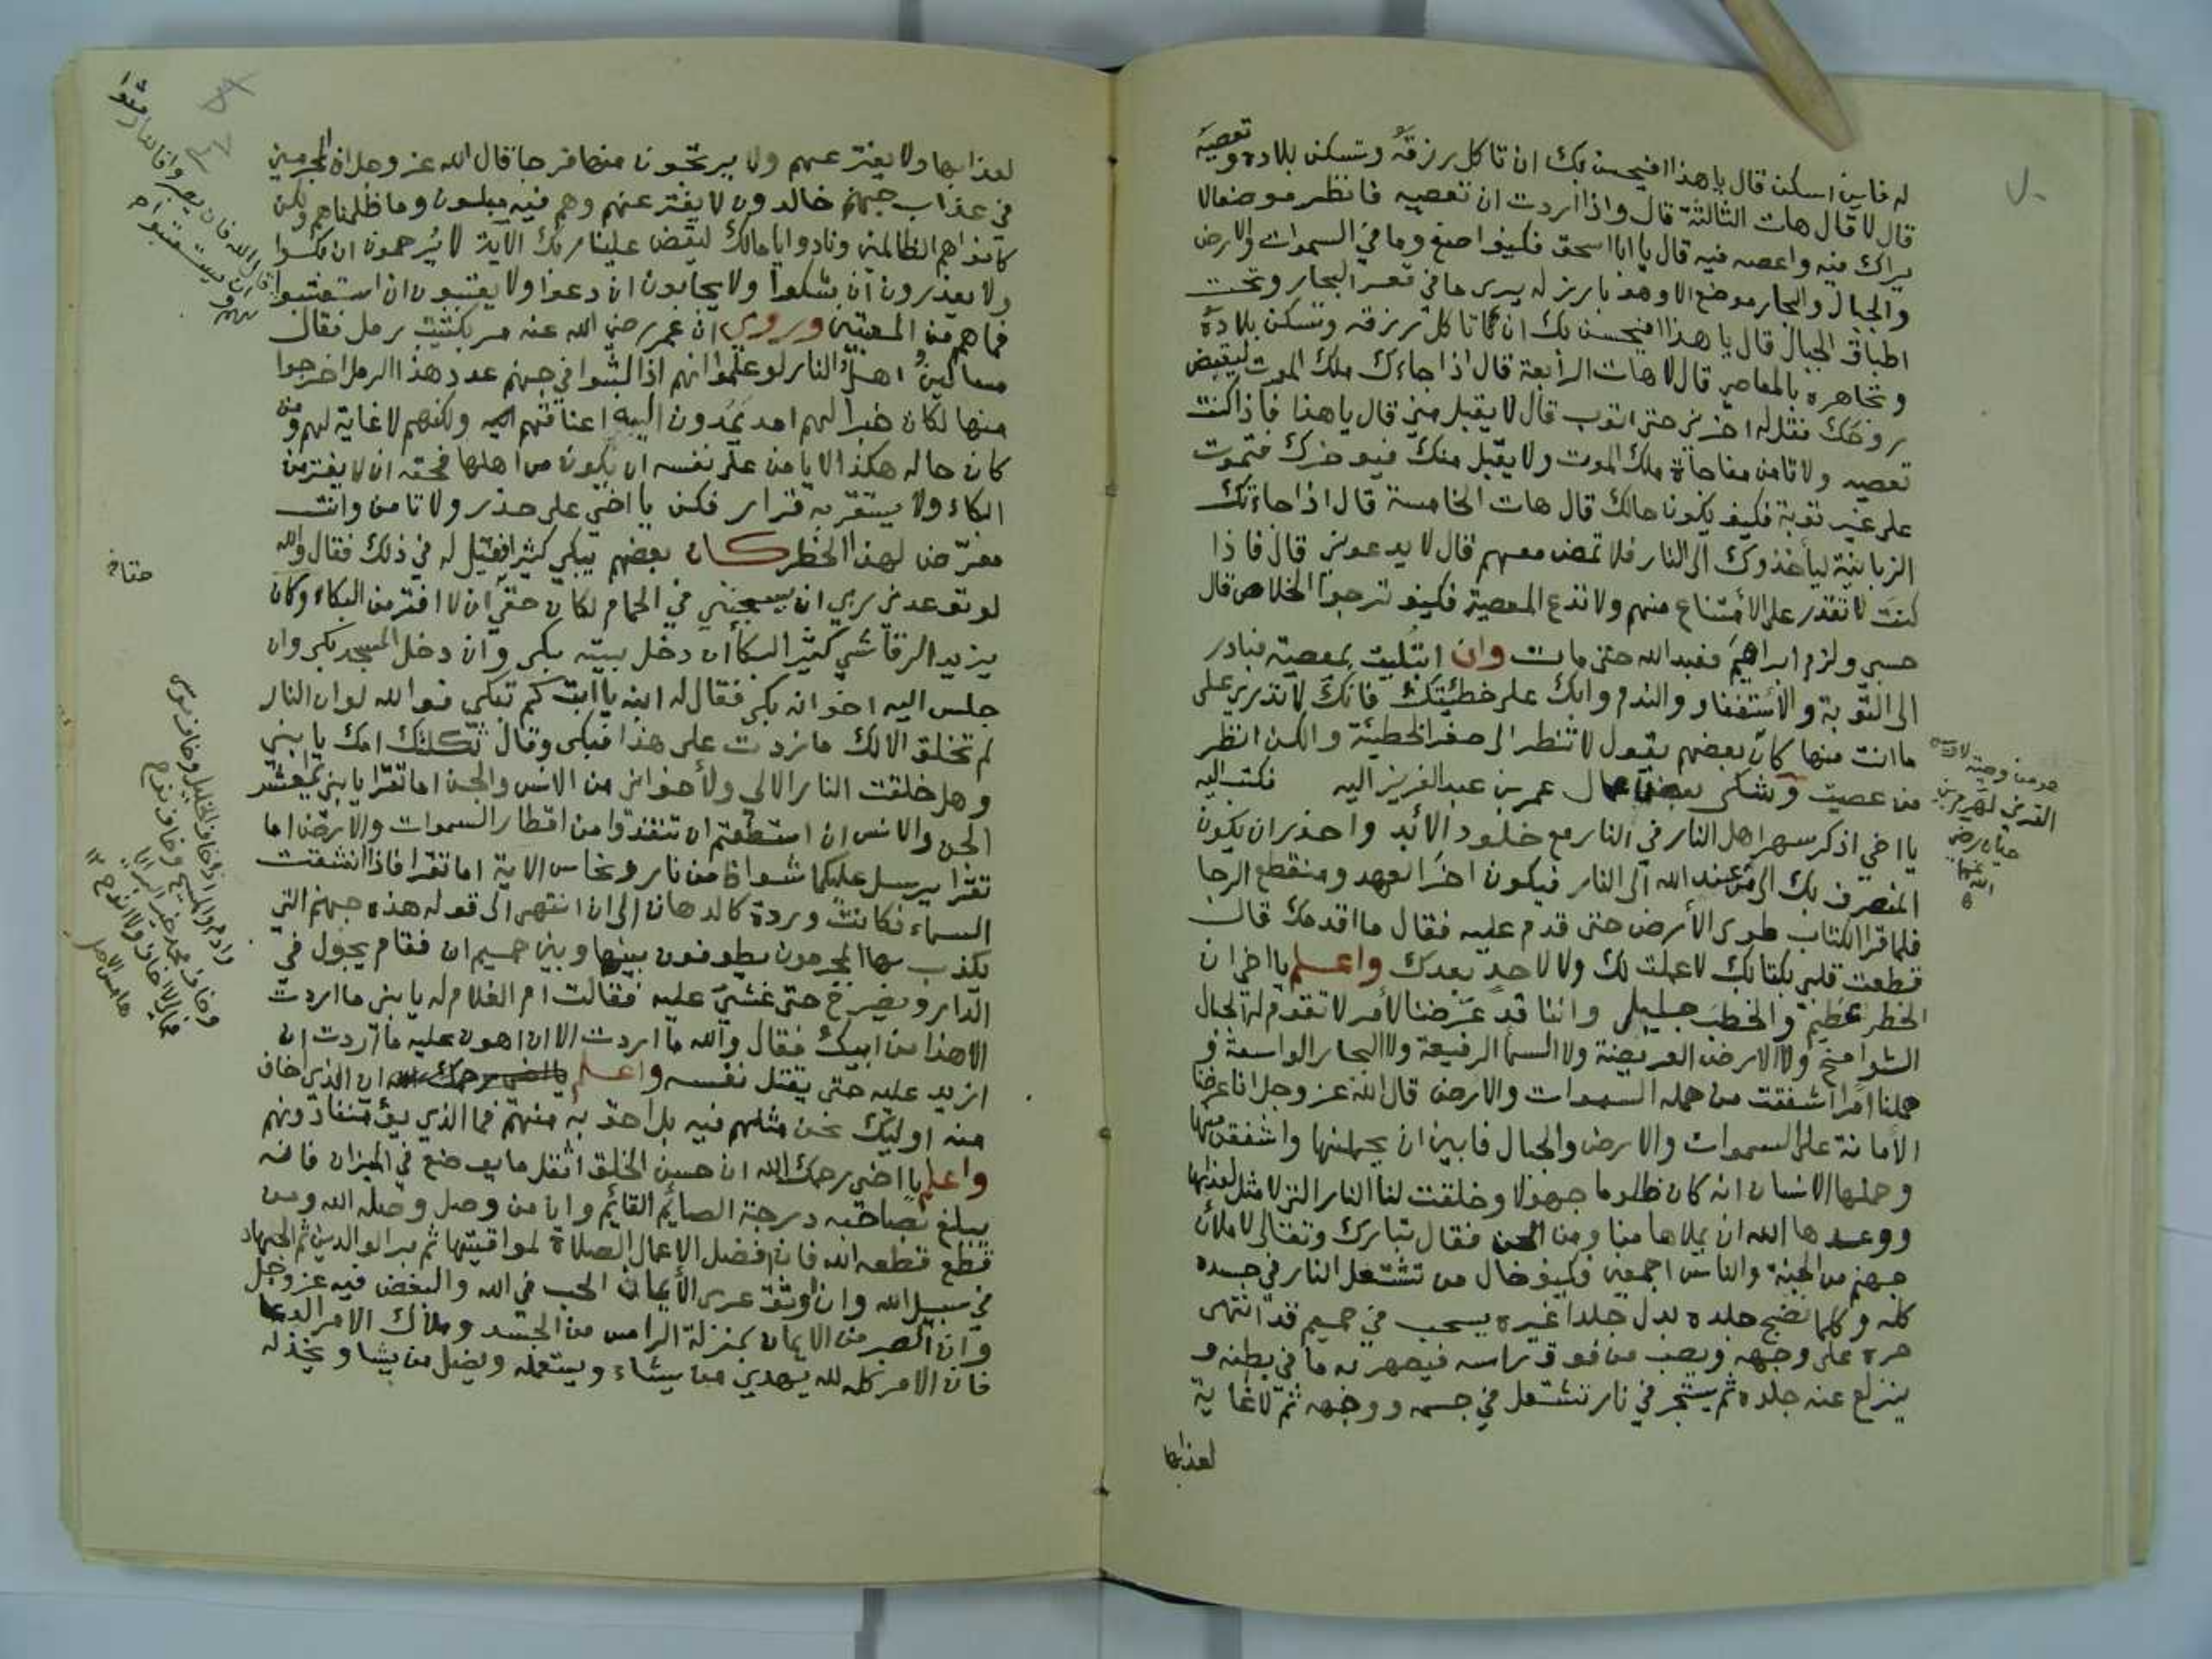 له فاين اسكن قال يا هذا افيحسن بك ان تاكل رزقه وتسكن بلاده وتعصيه
قال لا قال هات الثالثة قال واذا اردت ان تعصيه فانظر موضعا لا
يراك فيه واعصه فيه قال يا ابا اسحق فكيف اصنع وما في السموات والارض
والجبال والبحار موضع الا وهو بارز له يرى ما في قعر البحار وتحت
اطباق الجبال قال يا هذا افيحسن بك ان تاكل رزقه وتسكن بلاده
وتجاهره بالمعاصي قال لا هات الرابعة قال اذا جاءك ملك الموت ليقبض
روحك فقل له اخرني حتى اتوب قال لا يقبل مني قال يا هذا فاذا كنت
تعصيه ولا تامن مفاجاة ملك الموت ولا يقبل منك فيوخرك فتموت
على غير توبة فكيف يكون حالك قال هات الخامسة قال اذا جاءتك
الزبانية لياخذوك الى النار فلا تمض معهم قال لا يدعوني قال فاذا
كنت لا تقدر على الامتناع منهم ولا تدع المعصية فكيف ترجوا الخلاص قال
حسبي ولزم ابراهيم فعبد الله حتى مات وان ابتليت بمعصية فبادر
الى التوبة والاستغفار والندم وابك على خطيئتك فانك لا تدري على
ما انت منها كان بعضهم يقول لا تنظر الى صغر الخطيئة ولكن انظر
من عصيت وشكى بعض عمال عمر بن عبد العزيز اليه فكتب اليه
يا اخي اذكر سهر اهل النار في النار مع خلود الابد واحذر ان يكون
المنصرف بك من عند الله الى النار فيكون اخر العهد ومنقطع الرجا
فلما قرا الكتاب طوى الارض حتى قدم عليه فقال ما اقدمك قال
قطعت قلبي بكتابك لا عملت لك ولا لاحد بعدك واعلم يا اخي ان
الخطر عظيم والخطب جليل واننا قد عرضنا لامر لا تقوم له الجبال
الشوامخ ولا الارض العريضة ولا السما الرفيعة ولا البحار الواسعة و
حملنا امرا اشفقت من حمله السموات والارض قال الله عز وجل انا عرضنا
الامانة على السموات والارض والجبال فابين ان يحملنها واشفقن منها
وحملها الانسان انه كان ظلوما جهولا وخلقت لنا النار التي لا مثل لعذابها
ووعدها الله ان يملاها منا ومن الجن فقال تبارك وتعالى لاملان
جهنم من الجنة والناس اجمعين فكيف حال من تشتعل النار في جسده
كله وكلما نضج جلده بدل جلدا غيره يسحب في حميم قد انتهى
حره على وجهه ويصب من فوق راسه فيصهر به ما في بطنه و
ينزلع عنه جلده ثم يسجر في نار تشتعل في جسمه ووجهه ثم لا غاية
لعذابها
هو من وصية
القرني لهرم بن
حيان رضي
الله عنهما
لعذابها ولا يفتر عنهم ولا يرتجون منها فرجا قال الله عز وجل ان المجرمين
في عذاب جهنم خالدون لا يفتر عنهم وهم فيه مبلسون وما ظلمناهم ولكن
كانوا هم الظالمين ونادوا يا مالك ليقض علينا ربك الاية لا يرحمون ان بكوا
ولا يعذرون ان شكوا ولا يجابون ان دعوا ولا يعتبون ان استعتبوا
فما هم من المعتبين وروي ان عمر رضي الله عنه مر بكثيب رمل فقال
مساكين اهل النار لو علموا انهم اذا لبثوا في جهنم عدد هذا الرمل اخرجوا
منها لكان خيرا لهم امد يمدون اليه اعناقهم ولكنهم لا غاية لهم ومن
كان حاله هكذا لا يامن على نفسه ان يكون من اهلها فحقه ان لا يفتر من
البكاء ولا يستقر به قرار فكن يا اخي على حذر ولا تامن وانت
معرض لهذا الخطر كان بعضهم يبكي كثيرا فقيل له في ذلك فقال والله
لو توعدني ربي ان يسجنني في الحمام لكان حقي ان لا افتر من البكاء وكان
يزيد الرقاشي كثير البكا ان دخل بيته بكى وان دخل المسجد بكى وان
جلس اليه اخوانه بكى فقال له ابنه يا ابت كم تبكي فوالله لو ان النار
لم تخلق الا لك ما زدت على هذا فبكى وقال ثكلتك امك يا بني
وهل خلقت النار الا لي ولاخواني من الانس والجن اما تقرا يا بني يا معشر
الجن والانس ان استطعتم ان تنفذوا من اقطار السموات والارض اما
تقرا يرسل عليكما شواظ من نار ونحاس الاية اما تقرا فاذا انشقت
السماء فكانت وردة كالدهان الى ان انتهى الى قوله هذه جهنم التي
يكذب بها المجرمون يطوفون بينها وبين حميم ان فقام يجول في
الدار ويصرخ حتى غشي عليه فقالت ام الغلام له يا بني ما اردت
الا هذا من ابيك فقال والله ما اردت الا ان اهون عليه ما اردت ان
ازيد عليه حتى يقتل نفسه واعلم يا اخي يرحمك الله ان الذي خاف
منه اوليك نحن مثلهم فيه بل احق به منهم فما الذي يؤمننا دونهم
واعلم يا اخي يرحمك الله ان حسن الخلق اثقل ما يوضع في الميزان فانه
يبلغ بصاحبه درجة الصايم القايم وان من وصل وصله الله ومن
قطع قطعه الله فان افضل الاعمال الصلاة لمواقيتها ثم بر الوالدين ثم الجهاد
في سبيل الله وان اوثق عرى الايمان الحب في الله والبغض فيه عز وجل
وان الصبر من الايمان بمنزلة الراس من الجسد وملاك الامر الدعا
فان الامر كله لله يهدي من يشاء ويستعمله ويضل من يشا ويخذله
قال الله فان يصبروا فالنار مثوا
لهم وان يستعتبوا
وخاف موسى
وخاف المسيح وخاف نوح
هامش الاصل